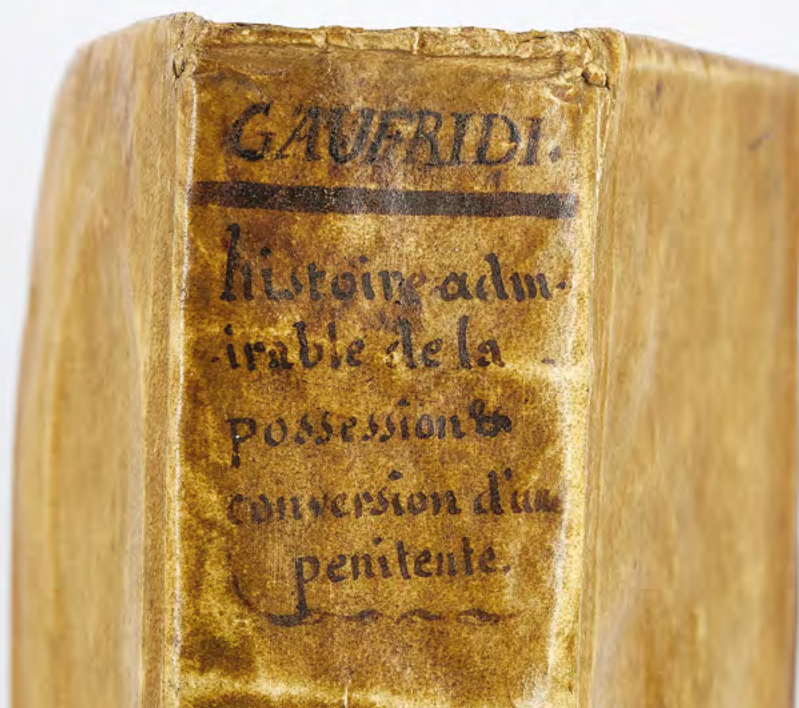 GAUFRIDI.
histoire adm-
-irable de la
possession &
conversion d'une
penitente.